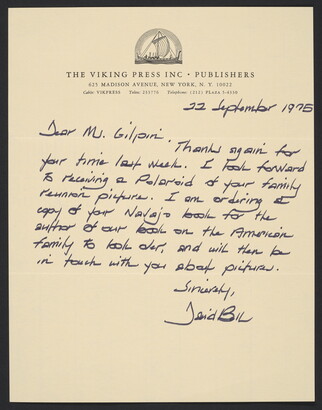 THE VIKING PRESS INC • PUBLISHERS
625 MADISON AVENUE, NEW YORK, N. Y. 10022
Cable: VIKPRESS Telex: Telephone: (212) PLAZA 5-4330
22 September 1975
Dear Ms. Gilpin:
Thanks again for
your time last week. I look forward
to receiving a Polaroid of your family
reunion picture. I am ordering a
copy of your Navajo book for the
author of our book on the American
family to look over, and will then be
in touch with you about pictures.
Sincerely,